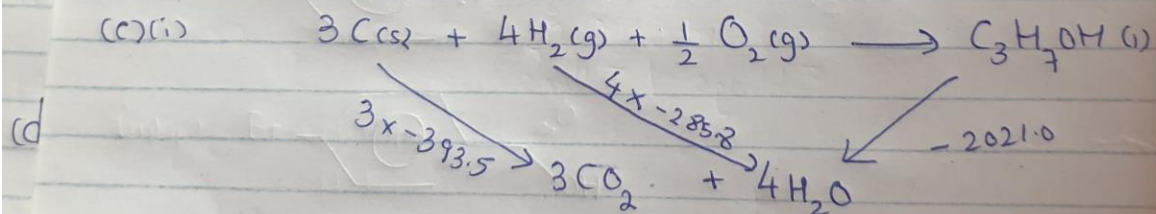 (c)(i) 3 C(s) + 4H₂(g) + ½ O₂(g) ⟶ C₃H₇OH (l)
3 x -393.5
4 x -285.8
- 2021.0
(d
3CO₂ + 4H₂O